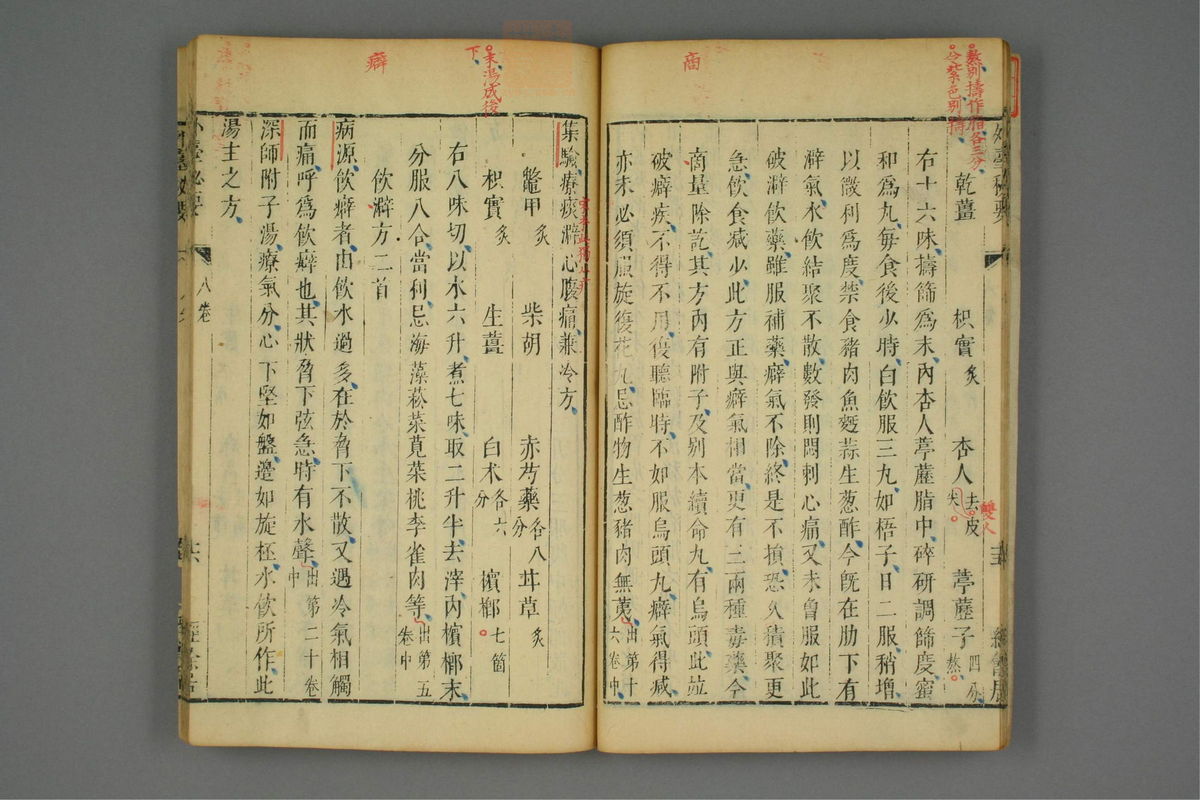 乾薑 枳實炙 杏人去皮尖 葶藶子四分熬
右十六味擣篩為末內杏人葶藶脂中碎研調篩度蜜
和為丸每食後少時白飲服三丸如梧子日二服稍增
以微利為度禁食豬肉魚麪蒜生葱酢今既在肋下有
澼氣水飲結聚不散數發則悶刺心痛又未魯服如此
破澼飲藥雖服補藥癖氣不除終是不損恐久積聚更
急飲食減少此方正與癖氣相當更有三兩種毒藥今
商量除訖其方內有附子及別本續命丸有烏頭此竝
破癖疾不得不用復聽臨時不如服烏頭丸癖氣得減
亦未必須服旋復花丸忌酢物生葱豬肉無荑出第十六卷中
集驗療痰澼心腹痛兼冷方
鼈甲炙 柴胡 赤芍藥各八分 甘草炙
枳實炙 生薑 白术各六分 檳榔七箇
右八味切以水六升煮七味取二升半去滓內檳榔末
分服八合當利忌海藻菘菜莧菜桃李雀肉等出第五卷中
飲澼方二首
病源飲癖者由飲水過多在於脅下不散又遇冷氣相觸
而痛呼為飲癖也其狀脅下弦急時有水聲出第二十卷中
深師附子湯療氣分心下堅如盤邊如旋柸水飲所作此
湯主之方
八卷
熬別擣作脂各三分
令紫色別擣
雙人
商
末湯成後
下
癖